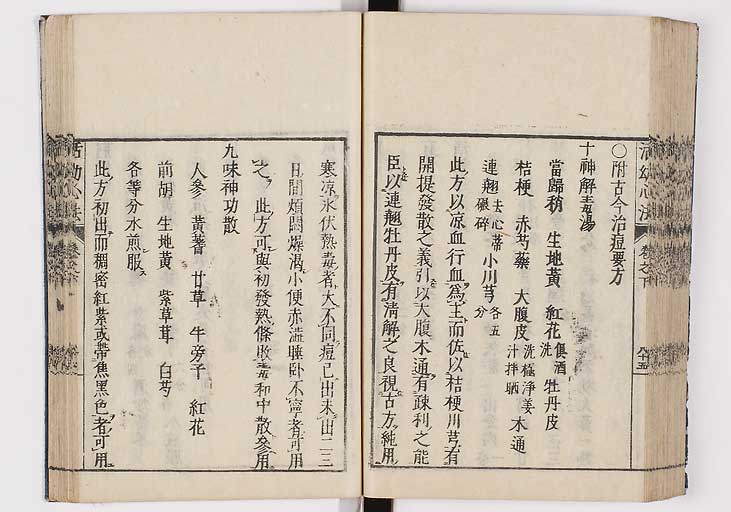 活幼心法 卷之下 八十五
○附古今治痘要方
十神解毒湯
當歸稍 生地黃 紅花俱酒洗 牡丹皮
桔梗 赤芍藥 大腹皮洗極淨姜汁拌晒 木通
連翹去心蒂碾碎 小川芎各五分
此方以涼血行血爲主而佐以桔梗川芎有
開提發散之義引以大腹木通有疎利之能
臣以連翹牡丹皮有清解之良視古方純用
寒涼氷伏熱毒者大不同痘已出未出二三
日間煩悶燥渴小便赤澁睡卧不寧者可用
之此方可與初發熱條敗毒和中散參用
九味神功散
人參 黃蓍 甘草 牛旁子 紅花
前胡 生地黃 紫草茸 白芍
各等分水煎服
此方初出而稠密紅紫或帶焦黑色者可用
活幼心法